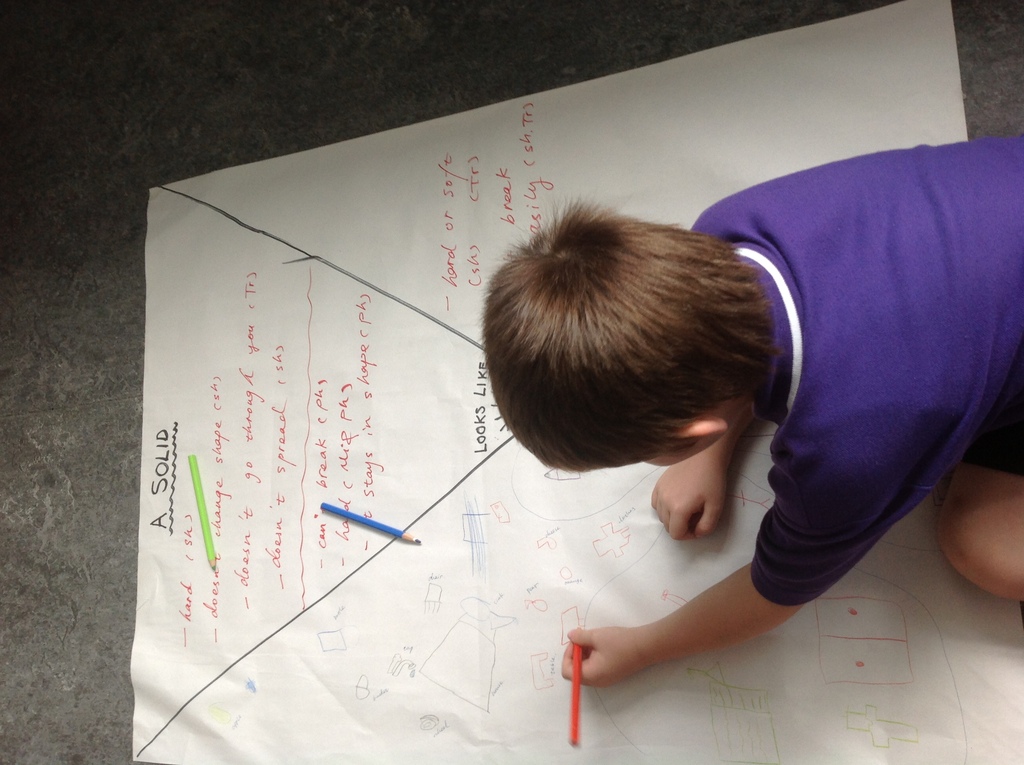 A SOLID
- hard (sh)
- doesn't change shape (sh)
- doesn't go through you (Tr)
- doesn't spread (sh)
- can't break (ph)
- hard (ph)
- it stays in shape (ph)
LOOKS LIKE
- hard or soft
(sh) (Tr)
break
easily (sh.Tr)